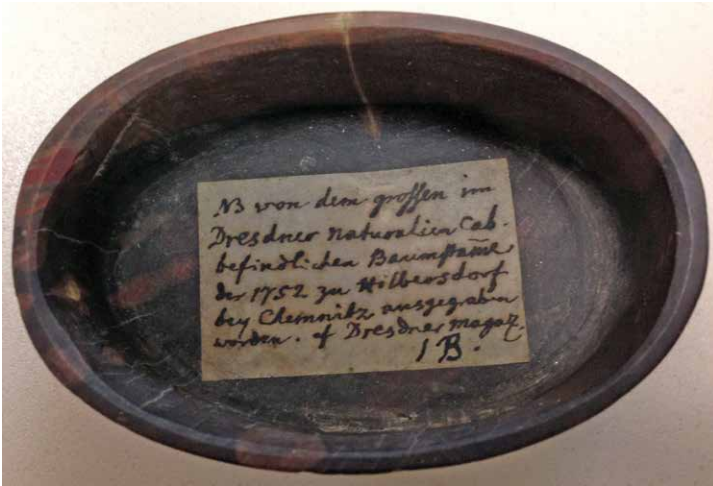 NB von dem groffen im
Dresdner Naturalien Cab.
befindlichen Baumstam̄e
der 1752 zu Hilbersdorf
bey Chemnitz ausgegraben
worden. cf Dresdner magaz.
1 B.